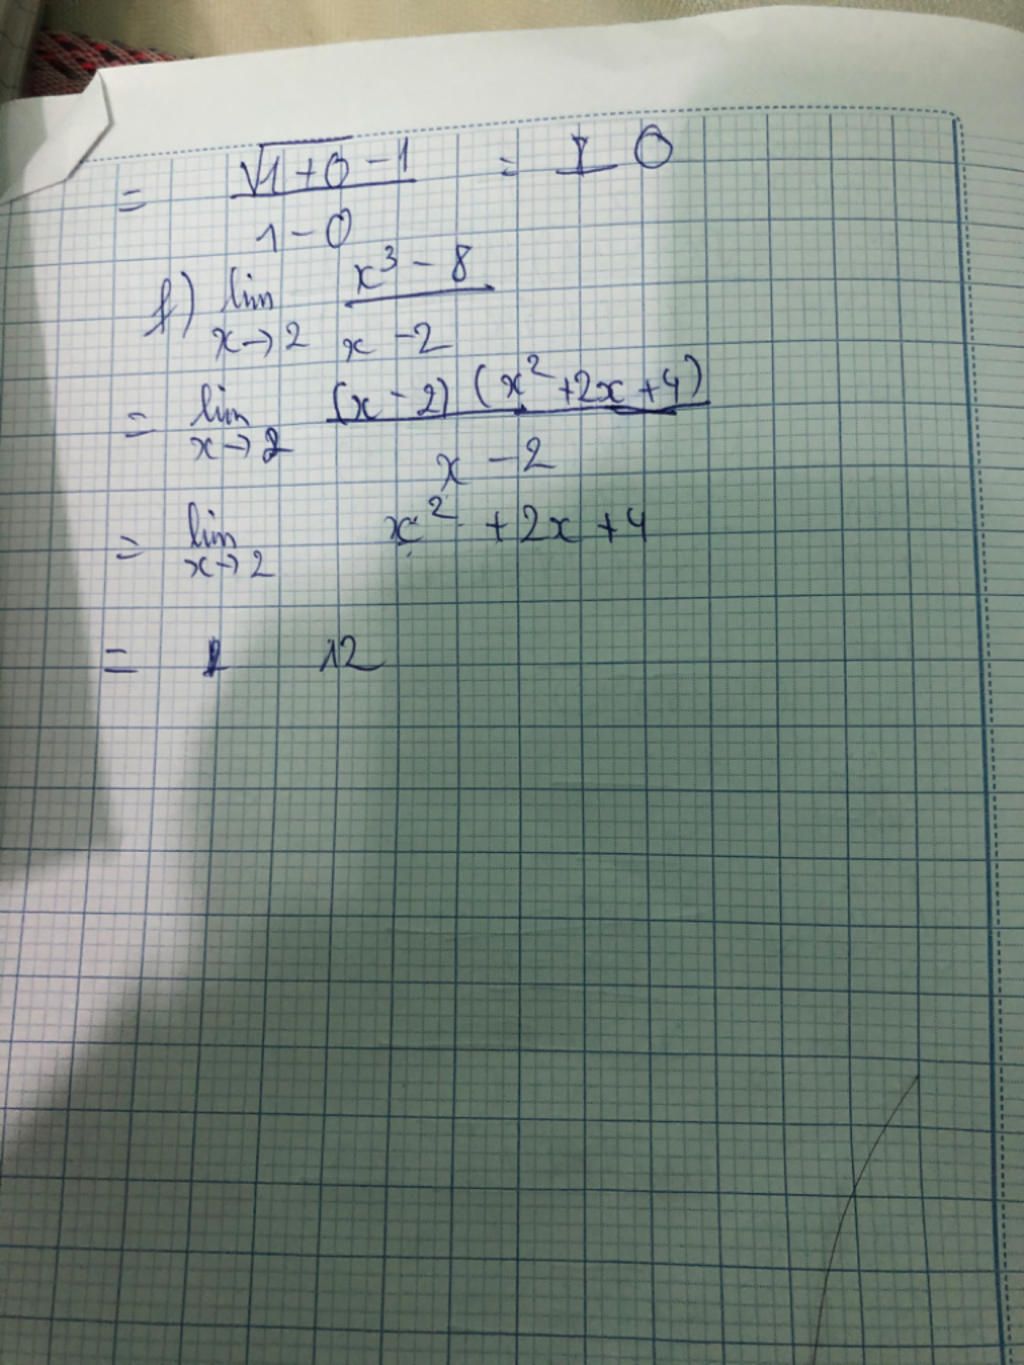 = √1+0 -1 / 1-0 = 0
f) lim x→2 x³ - 8 / x - 2
= lim x→2 (x - 2) (x² + 2x + 4) / x - 2
= lim x→2 x² + 2x + 4
= 12